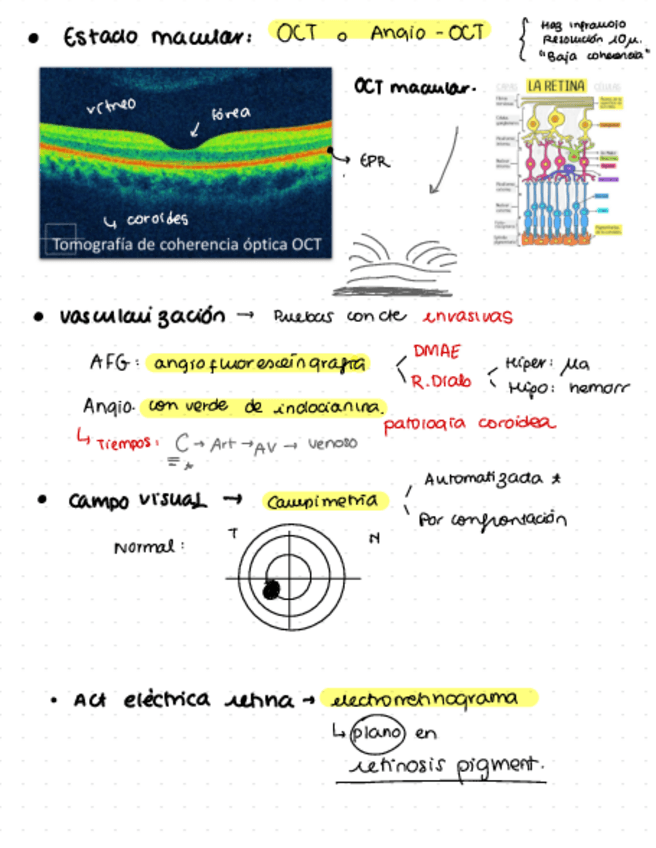 • Estado macular: OCT o Angio-OCT
Haz infrarrojo
Resolución 10µ.
"Baja coherencia"
vítreo
fóvea
EPR
↳ coroides
Tomografía de coherencia óptica OCT
OCT macular.
LA RETINA
• vascularización → Pruebas con cte invasivas
AFG: angiofluoresceíngrafía
DMAE
R.Diab
Hiper: µa
Hipo: hemorr
Angio. con verde de indocianina.
patología coroidea
↳ Tiempos: C → Art → AV → venoso
• Campo visual → Campimetría
Automatizada *
Por confrontación
Normal:
T
N
• Act eléctrica retina → electroretinograma
↳ plano en
retinosis pigment.